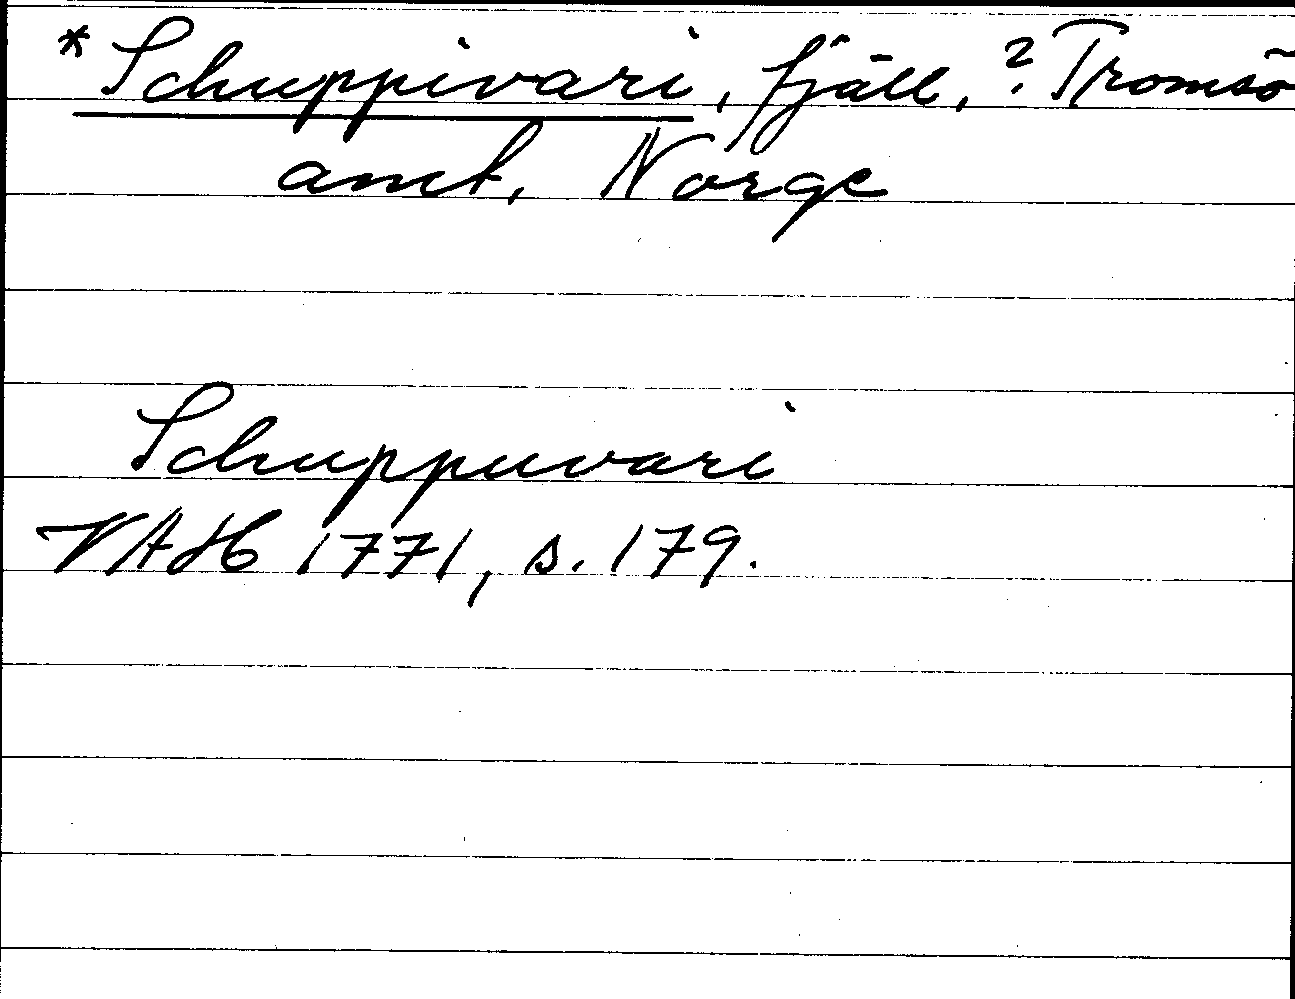 *Schuppivari, fjäll, ? Tromsö
amt, Norge
Schuppuvari
VAH 1771, s. 179.